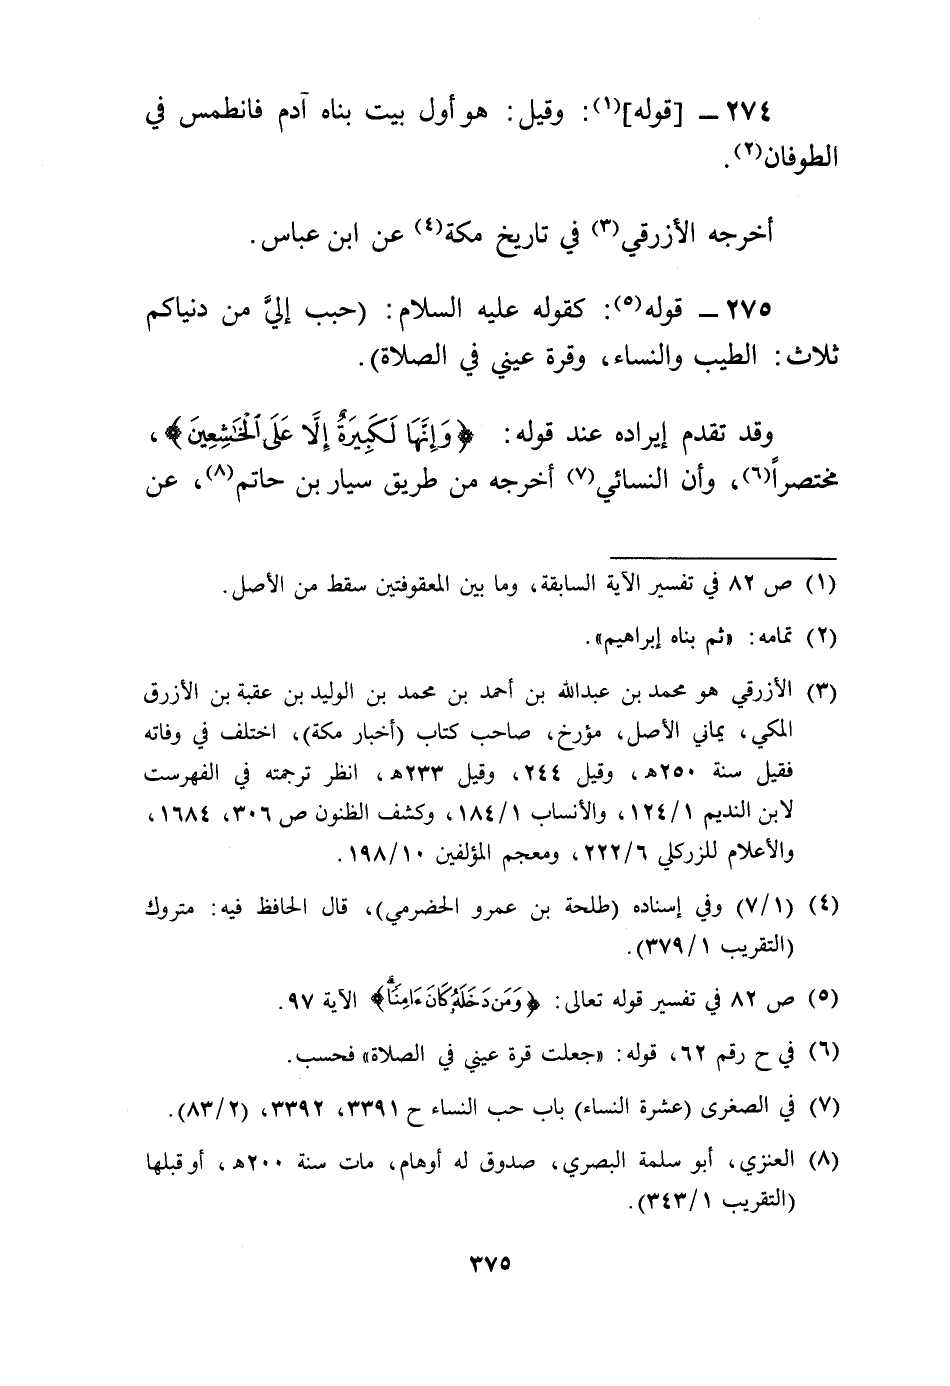 ٢٧٤ ـ [قوله](١): وقيل: هو أول بيت بناه آدم فانطمس في
الطوفان(٢).
أخرجه الأزرقي(٣) في تاريخ مكة(٤) عن ابن عباس.
٢٧٥ ـ قوله(٥): كقوله عليه السلام: (حبب إليَّ من دنياكم
ثلاث: الطيب والنساء، وقرة عيني في الصلاة).
وقد تقدم إيراده عند قوله: ﴿وَإِنَّهَا لَكَبِيرَةٌ إِلَّا عَلَى ٱلْخَٰشِعِينَ﴾،
مختصراً(٦)، وأن النسائي(٧) أخرجه من طريق سيار بن حاتم(٨)، عن
(١) ص ٨٢ في تفسير الآية السابقة، وما بين المعقوفتين سقط من الأصل.
(٢) تمامه: «ثم بناه إبراهيم».
(٣) الأزرقي هو محمد بن عبدالله بن أحمد بن محمد بن الوليد بن عقبة بن الأزرق
المكي، يماني الأصل، مؤرخ، صاحب كتاب (أخبار مكة)، اختلف في وفاته
فقيل سنة ٢٥٠هـ، وقيل ٢٤٤، وقيل ٢٣٣هـ، انظر ترجمته في الفهرست
لابن النديم ١/١٢٤، والأنساب ١/١٨٤، وكشف الظنون ص ٣٠٦، ١٦٨٤،
والأعلام للزركلي ٦/٢٢٢، ومعجم المؤلفين ١٠/١٩٨.
(٤) (١/٧) وفي إسناده (طلحة بن عمرو الحضرمي)، قال الحافظ فيه: متروك
(التقريب ١/٣٧٩).
(٥) ص ٨٢ في تفسير قوله تعالى: ﴿وَمَن دَخَلَهُۥ كَانَ ءَامِنًاۗ﴾ الآية ٩٧.
(٦) في ح رقم ٦٢، قوله: «جعلت قرة عيني في الصلاة» فحسب.
(٧) في الصغرى (عشرة النساء) باب حب النساء ح ٣٣٩١، ٣٣٩٢، (٢/٨٣).
(٨) العنزي، أبو سلمة البصري، صدوق له أوهام، مات سنة ٢٠٠هـ، أو قبلها
(التقريب ١/٣٤٣).
٣٧٥